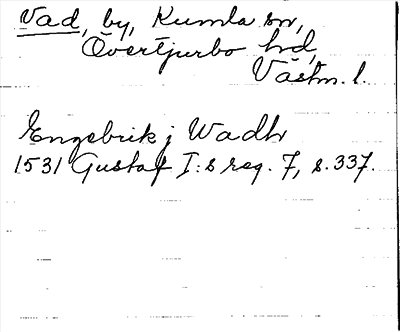 Vad, by, Kumla sn,
Övertjurbo hd,
Västm. l.
Engebrik j Wadh
1531 Gustaf I:s reg. 7, s. 337.